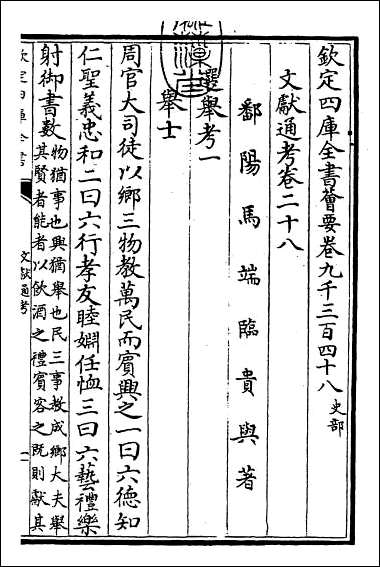 欽定四庫全書薈要卷九千三百四十八 史部
文獻通考卷二十八
鄱陽馬端臨貴與著
選舉考一
舉士
周官大司徒以鄉三物教萬民而賓興之一曰六德知
仁聖義忠和二曰六行孝友睦婣任恤三曰六藝禮樂
射御書數物猶事也興猶舉也民三事教成鄉大夫舉
其賢者能者以飲酒之禮賓客之既則獻其
欽定四庫全書
文獻通考
一